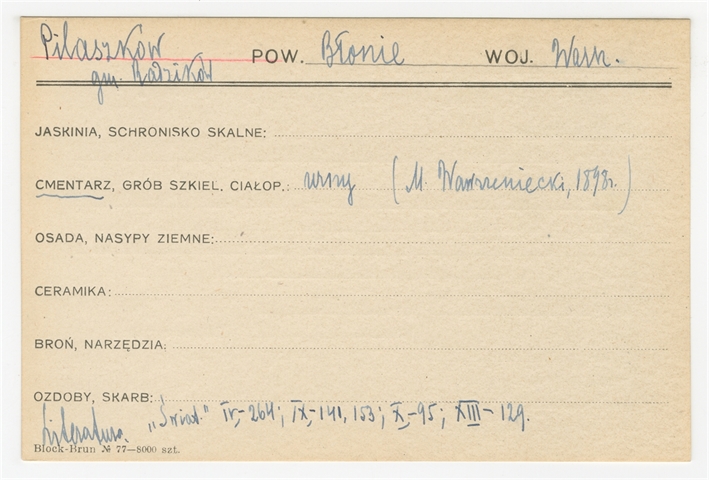 Pilaszków POW. Błonie WOJ. Warsz.
gm. Radzików
JASKINIA, SCHRONISKO SKALNE:
CMENTARZ, GRÓB SZKIEL. CIAŁOP.: urny (M. Wawrzeniecki, 1898r.)
OSADA, NASYPY ZIEMNE:
CERAMIKA:
BROŃ, NARZĘDZIA:
OZDOBY, SKARB:
Literatura. „Świat." IV,-264; IX,-141, 153; X,-95; XIII-129.
Block-Brun № 77—8000 szt.